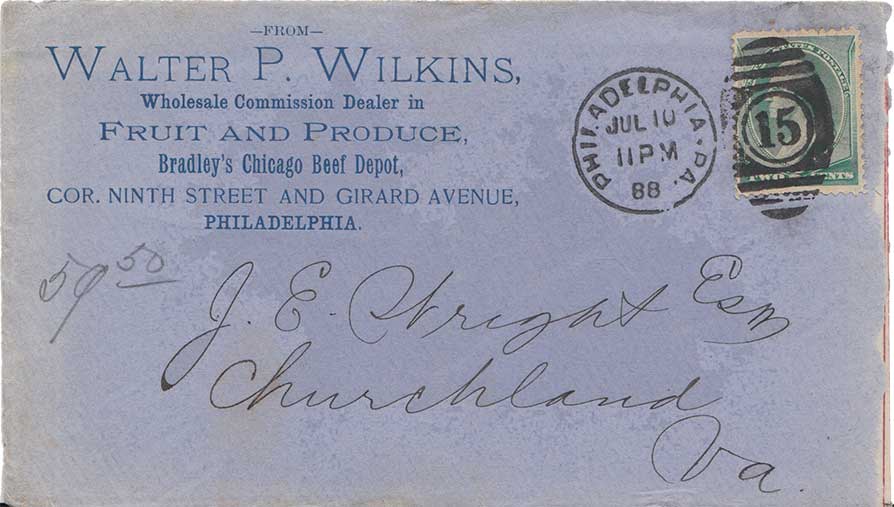 —FROM—
WALTER P. WILKINS,
Wholesale Commission Dealer in
FRUIT AND PRODUCE,
Bradley's Chicago Beef Depot,
COR. NINTH STREET AND GIRARD AVENUE,
PHILADELPHIA.
PHILADELPHIA, PA.
JUL 10
11 PM
88
15
59 50
J. E. Wright Esq
Churchland
Va.